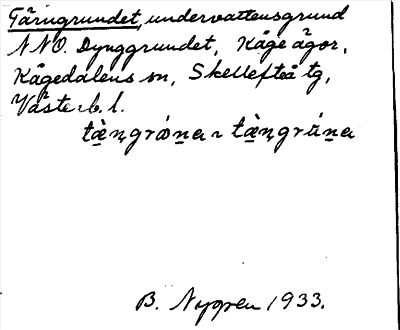 Tärngrundet, undervattensgrund
NNO. Dynggrundet, Kåge ägor,
Kågedalens sn, Skellefteå tg,
Västerb. l.
B. Nygren 1933.